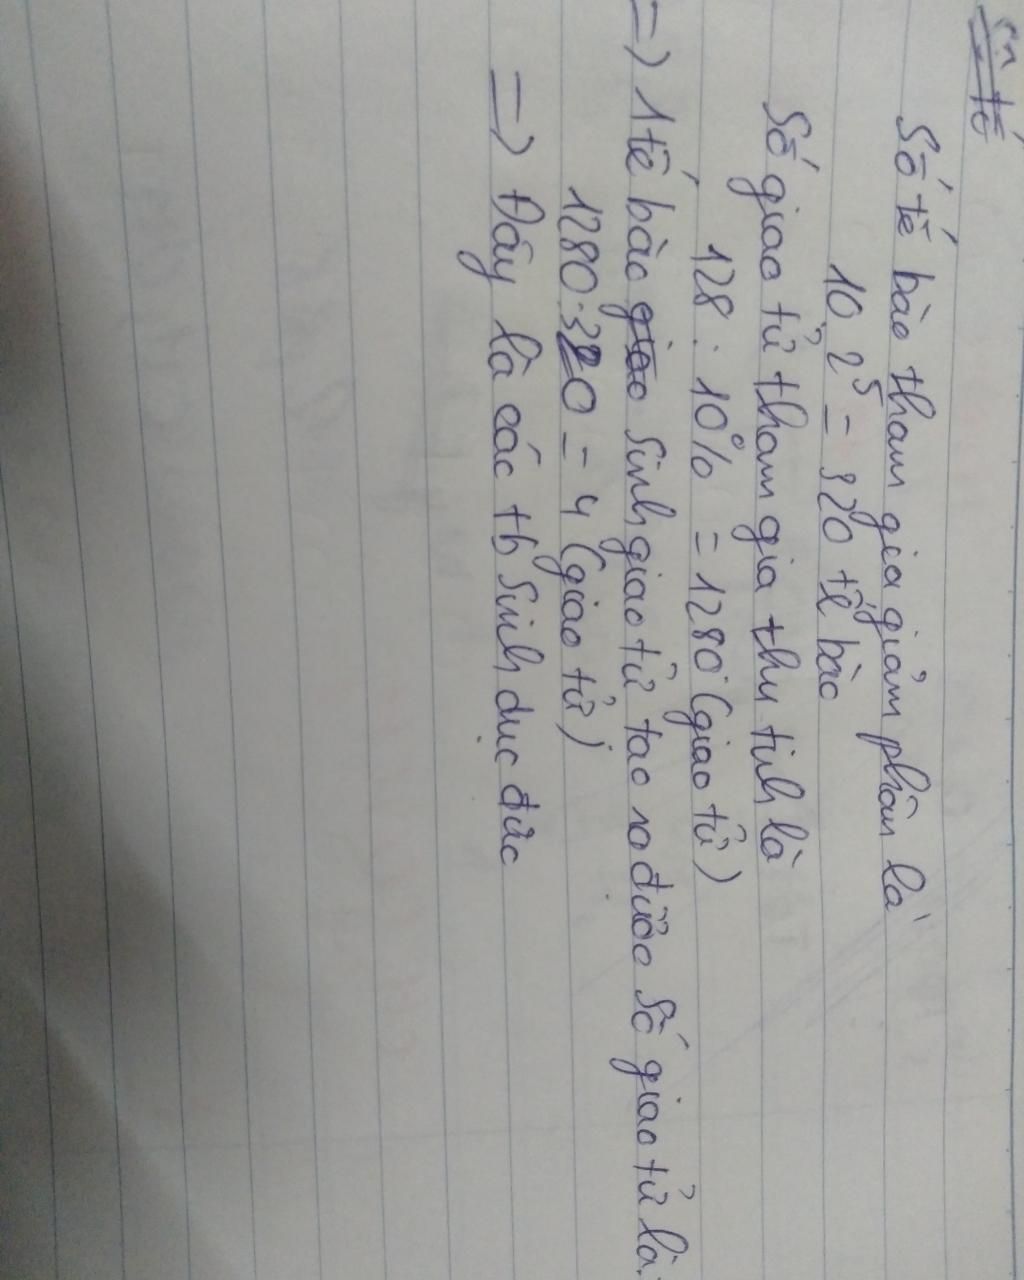 Số tế bào tham gia giảm phân là
10.2⁵ = 320 tế bào
Số giao tử tham gia thụ tinh là
128 : 10% = 1280 (giao tử)
=) 1 tế bào sinh giao tử tạo ra được số giao tử là:
1280:320 = 4 (giao tử)
=) Đây là các tb sinh dục đực